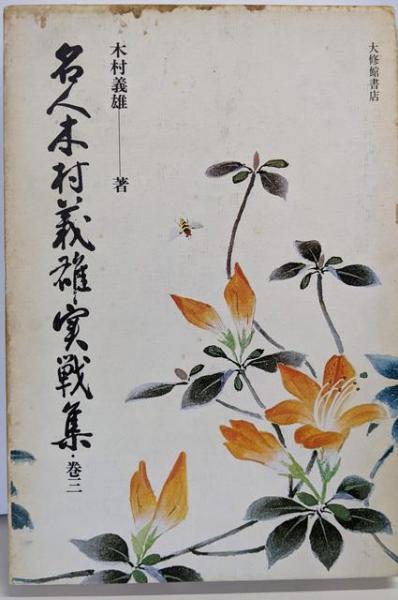 大修館書店
木村義雄——著
名人木村義雄実戦集・巻三